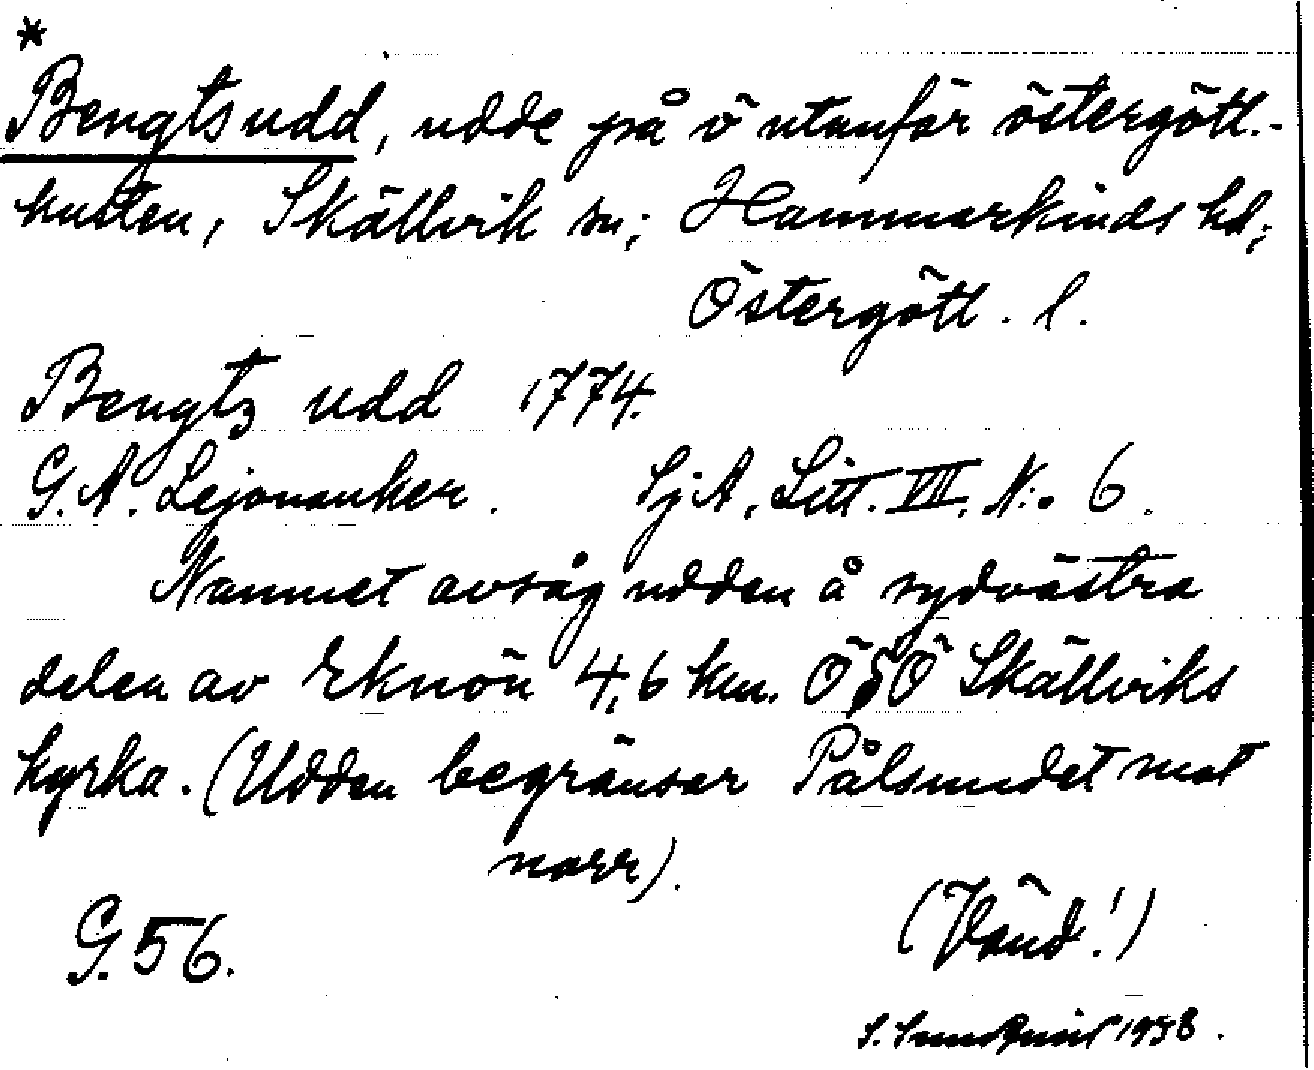 *
Bengtsudd, udde på ö utanför östergött.-
kusten, Skällvik sn; Hammarkinds hd;
Östergötl. l.
Bengtz udd 1774.
G. A. Lejonanker. SjA, Litt. VII, N:o 6.
Namnet avsåg udden å sydvästra
delen av Eknön 4,6 km. ÖSÖ Skällviks
kyrka. (Udden begränsar Pålsundet mot
norr).
G. 56. (Vänd!)
S. 1958.